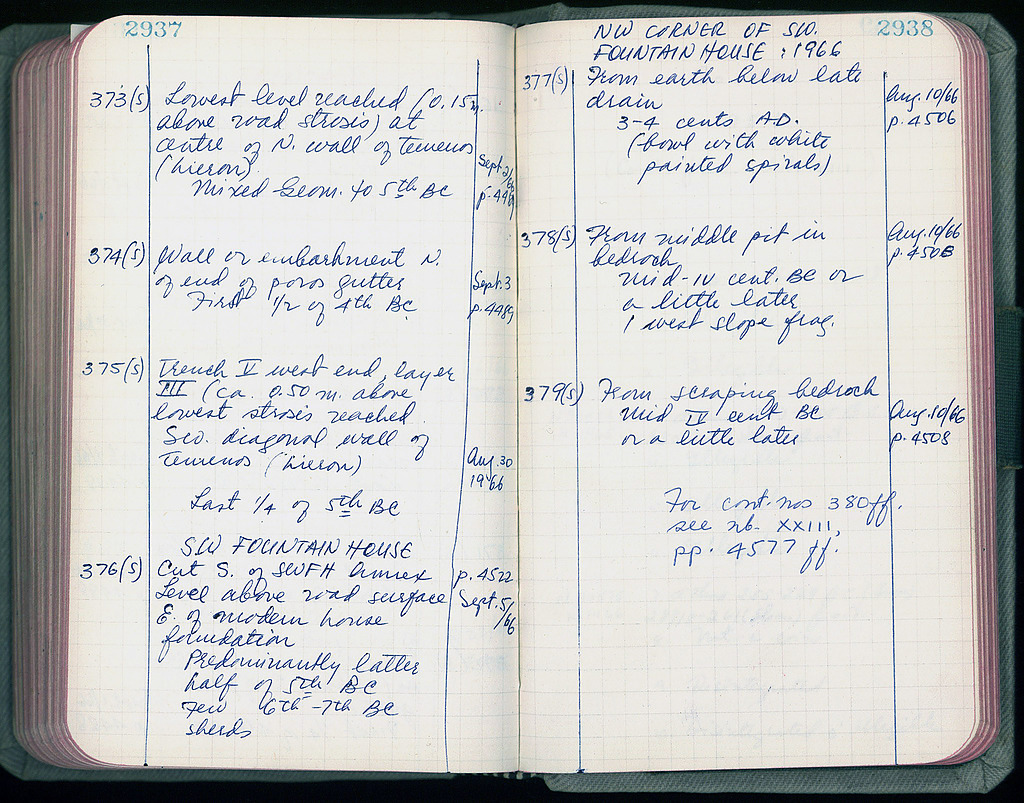 2937
373(s) Lowest level reached (0.15 m.
above road strosis) at
centre of N. wall of temenos
(hieron)
Mixed Geom. to 5th BC
Sept. 2/66
p. 4489
374(s) Wall or embankment N.
of end of poros gutter
First 1/2 of 4th BC
Sept. 3
p. 4489
375(s) Trench V west end, layer
III (ca. 0.50 m. above
lowest strosis reached
SW. diagonal wall of
Temenos (hieron)
Aug. 30
1966
Last 1/4 of 5th BC
SW FOUNTAIN HOUSE
376(s) Cut S. of SWFH Annex p. 4522
Level above road surface Sept. 5/66
E. of modern house
foundation
Predominantly latter
half of 5th BC
Few 6th-7th BC
sherds
2938
NW CORNER OF SW.
FOUNTAIN HOUSE : 1966
377(s) From earth below late
drain
3-4 cents A.D.
(bowl with white
painted spirals)
Aug. 10/66
p. 4506
378(s) From middle pit in
bedrock
Mid-IV cent. BC or
a little later
1 west slope frag.
Aug. 10/66
p. 4508
379(s) From scraping bedrock
Mid IV cent BC
or a little later
Aug. 10/66
p. 4508
For cont. nos 380ff.
see nb. XXIII,
pp. 4577 ff.